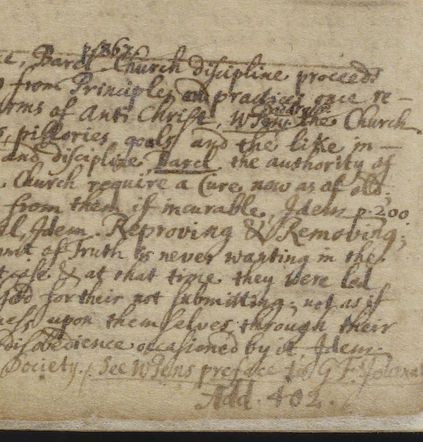 p 362
Barcl Church discipline proceeds
from Principles and practices once re-
orms of Anti Christ, WPenn the Church
s, pillories goals and the like in-
and discipline, Barcl the authority of
Church require a Cure now as of old.
from them if incurable, Idem p 200
al, Idem. Reproving & Removing;
of Truth is never wanting in the
case & at that time they were led
God for their not submitting; not as if
ness upon themselves through their
disobedience occasioned by it Idem.
Society. See WPens preface to G F Journal
Add. 402.